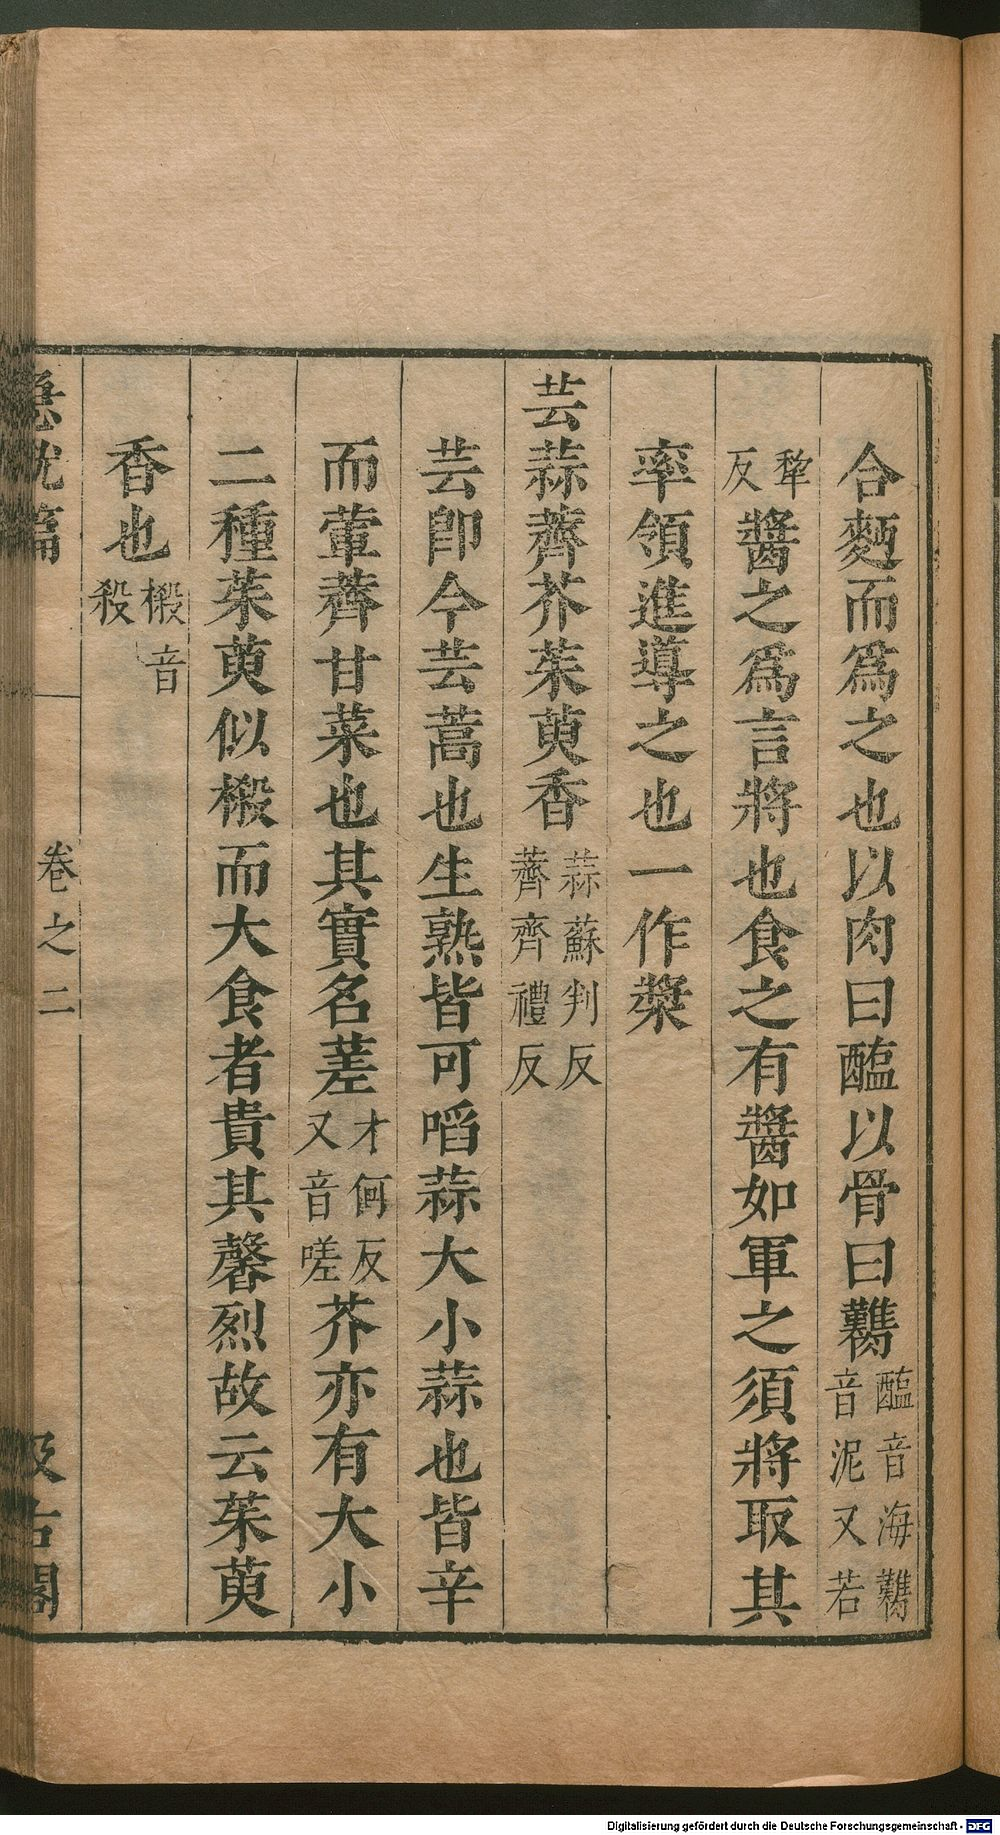 合麪而爲之也以肉曰醢以骨曰臡醢音海臡音泥又若
犂反醬之爲言將也食之有醬如軍之須將取其
率領進導之也一作漿
芸蒜薺芥茱萸香蒜蘇判反薺齊禮反
芸卽今芸蒿也生熟皆可啗蒜大小蒜也皆辛
而葷薺甘菜也其實名蒫才何反又音嗟芥亦有大小
二種茱萸似樧而大食者貴其馨烈故云茱萸
香也樧音殺
急就篇
卷之二
汲古閣
Digitalisierung gefördert durch die Deutsche Forschungsgemeinschaft - DFG